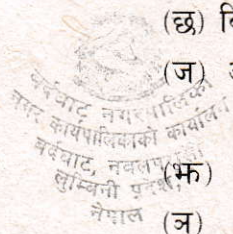 (छ)
(ज)
बर्दघाट नगरपालिका
नगर कार्यपालिकाको कार्यालय
बर्दघाट,
लुम्बिनी प्रदेश,
नेपाल
(झ)
(ञ)